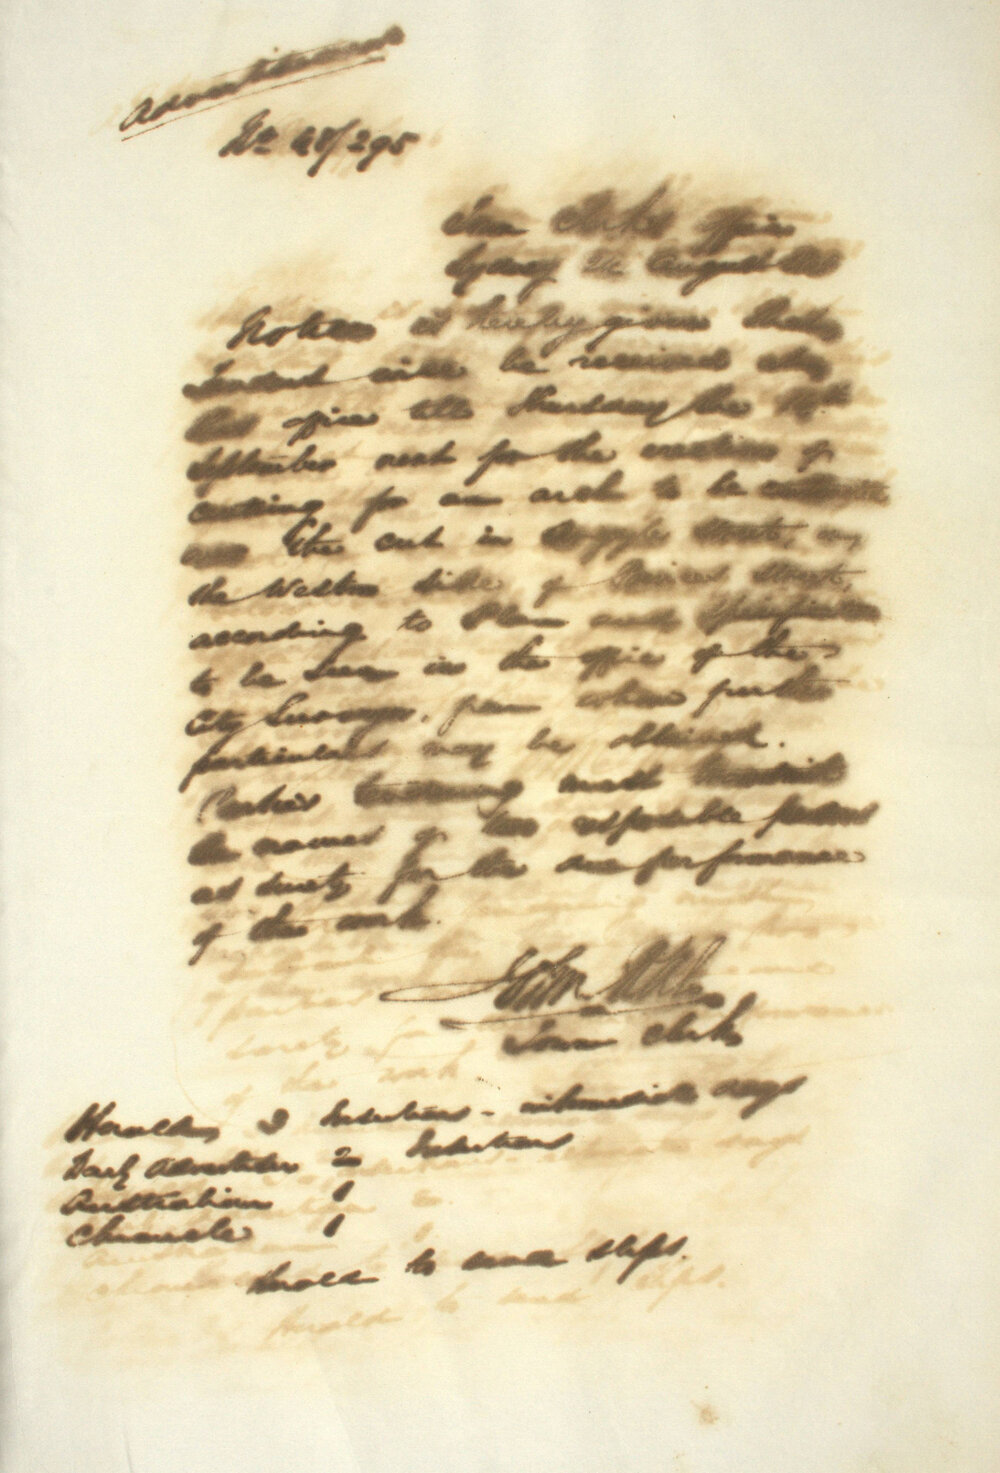 Advertisement
No 48/295
Town Clerk's Office
Sydney August
Notice is hereby given that
Tenders will be received at
this office till Thursday the
September next for the erection of
centering for an arch to be
over the cut in Street, on
the Western side of Street,
according to Plan and Specification
to be seen in the office of the
City Surveyor, from whom further
particulars may be obtained.
Parties tendering must
the names of two responsible persons
as surety for the due performance
of the work.
Town Clerk
Herald 3 Insertions - intermediate days
Daily Advertiser 2 Insertions
Australian 1
Chronicle 1
Herald to send slips.